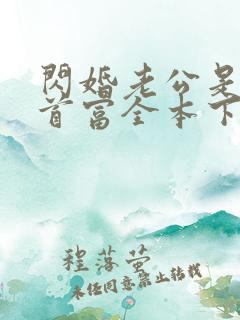 閃婚老公是
首富全本下
程落螢
未任同意禁止转载